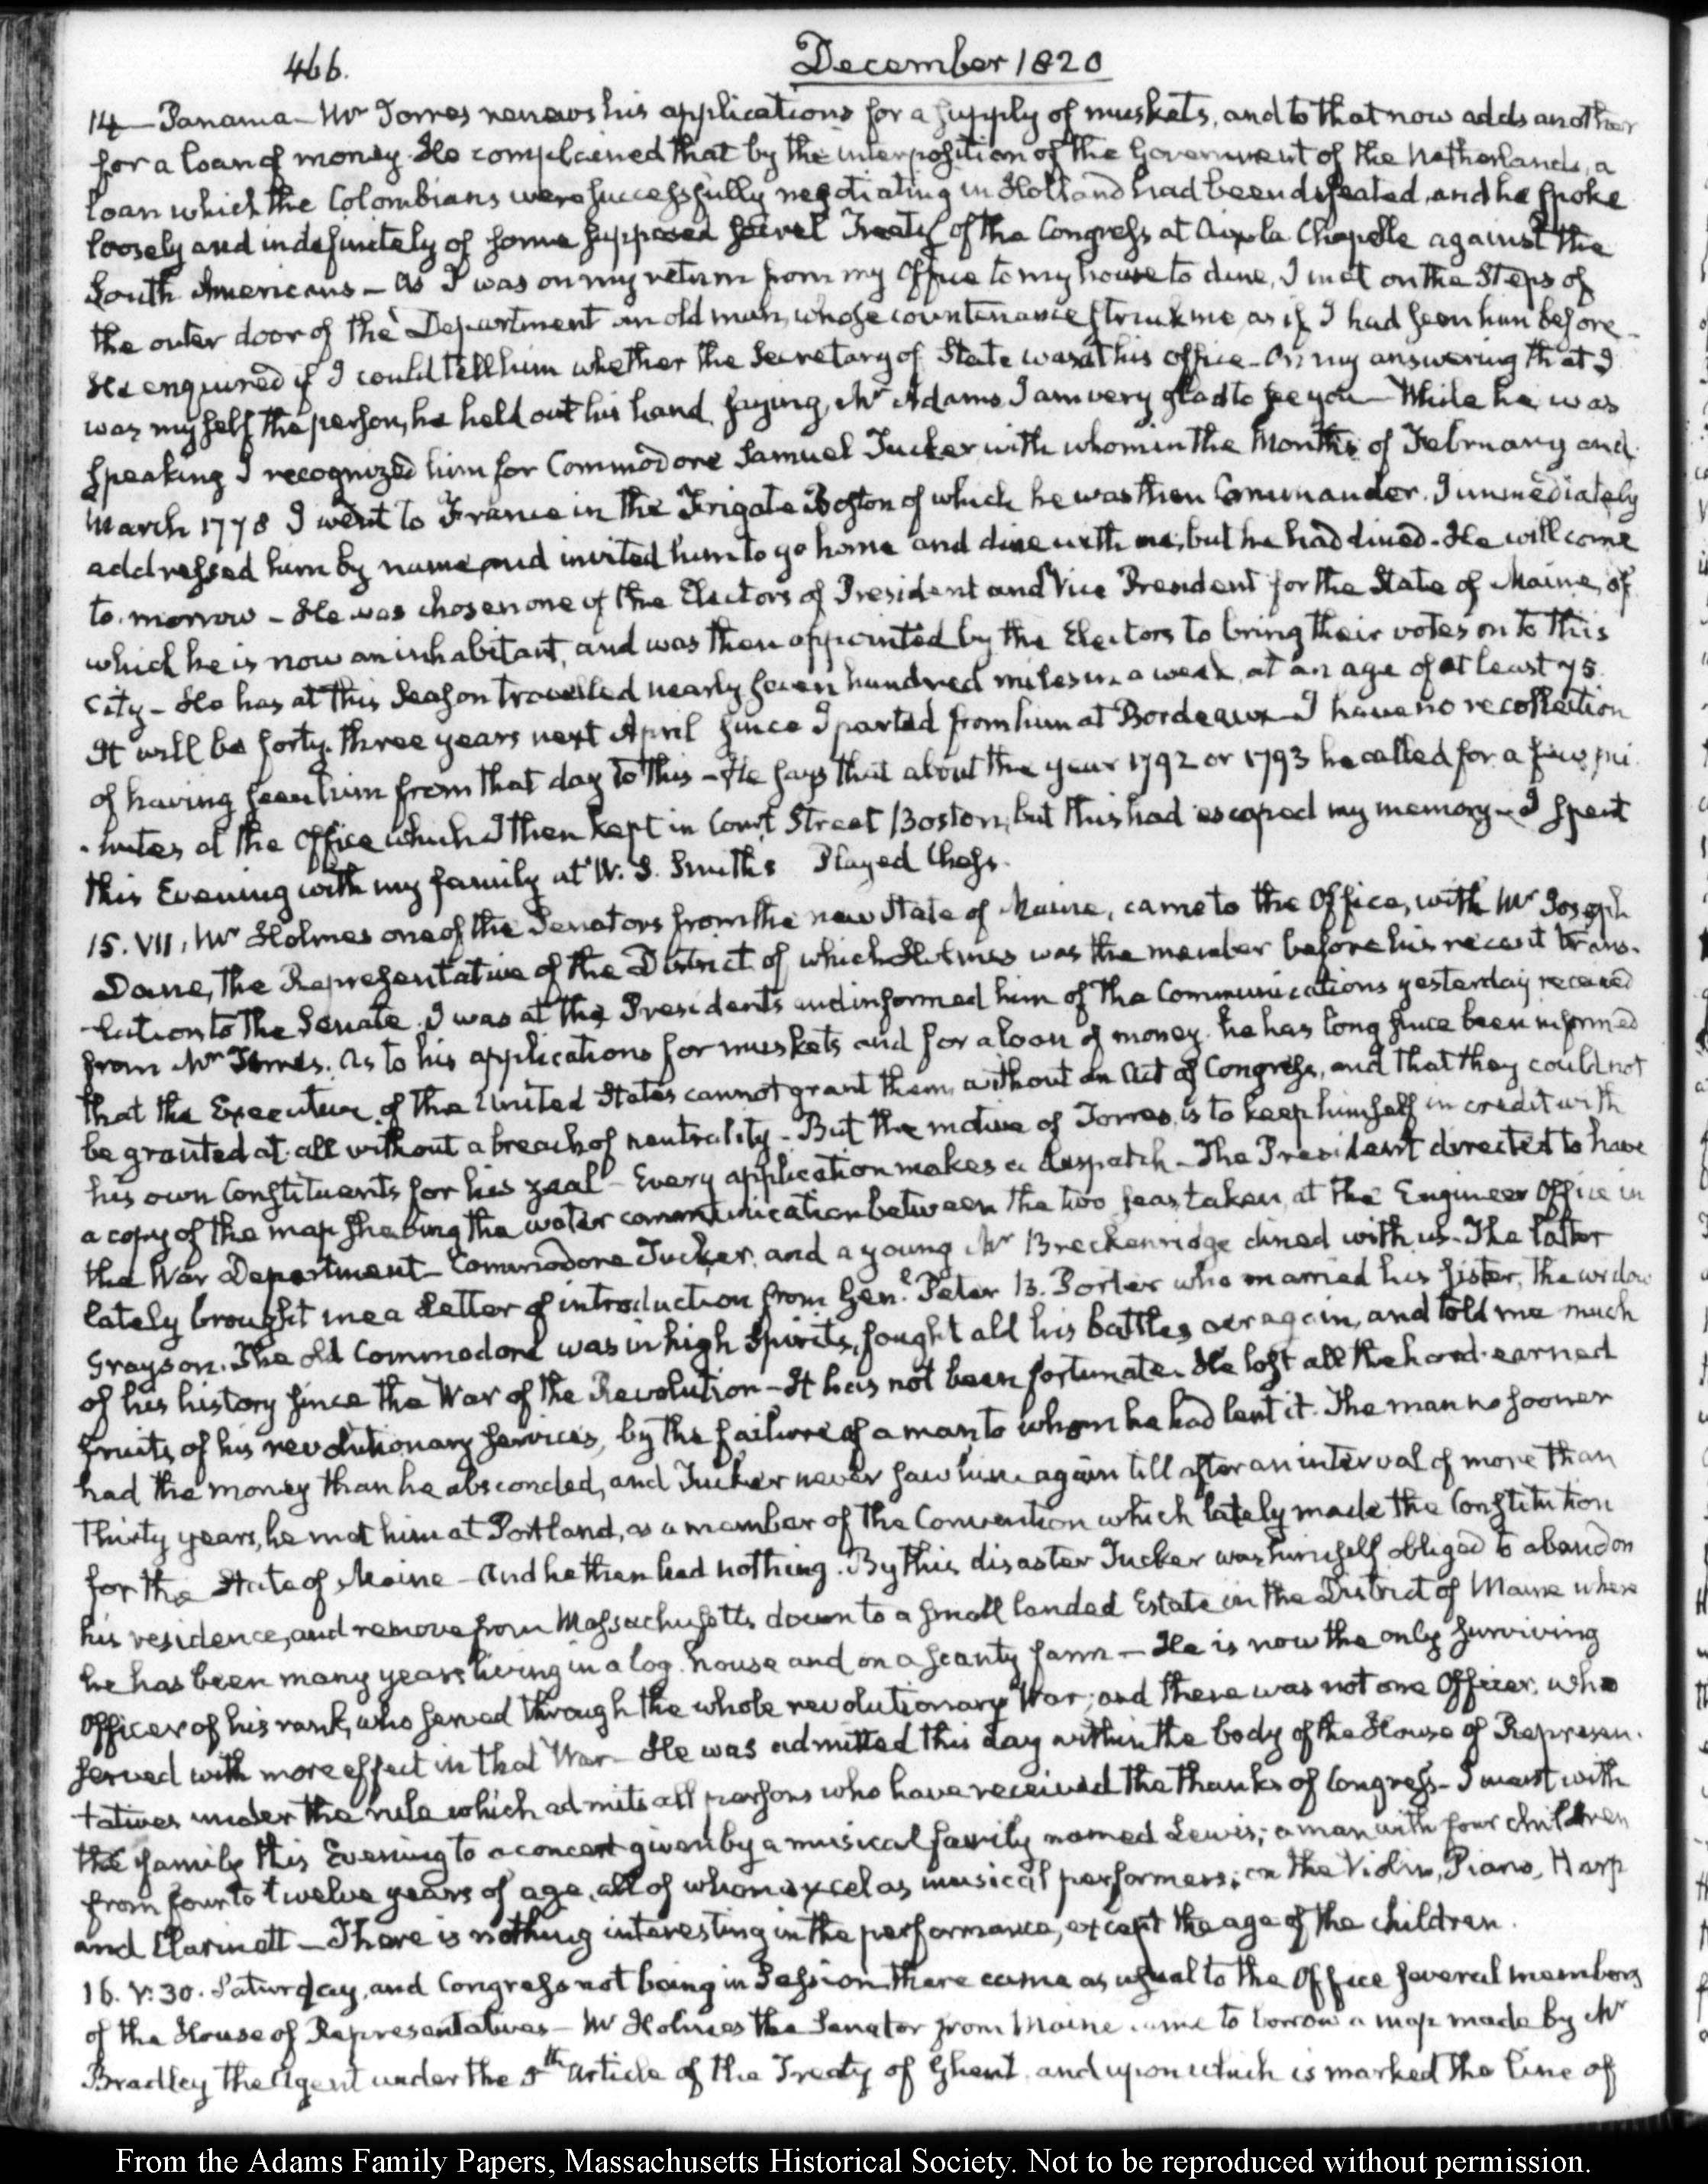 466.
December 1820
14 — Panama — Mr Torres renews his applications for a supply of muskets, and to that now adds another
for a loan of money. He complained that by the interposition of the Government of the Netherlands, a
loan which the Colombians were successfully negotiating in Holland had been defeated, and he spoke
loosely and indefinitely of some supposed secret Treaty of the Congress at Aix la Chapelle against the
South Americans — As I was on my return from my Office to my house to dine, I met on the Steps of
the outer door of the Department an old man, whose countenance struck me, as if I had seen him before —
He enquired if I could tell him whether the Secretary of State was at his office — On my answering that I
was myself the person, he held out his hand saying, Mr Adams I am very glad to see you — While he was
speaking I recognized him for Commodore Samuel Tucker with whom in the Months of February and
March 1778 I went to France in the Frigate Boston of which he was then Commander. I immediately
addressed him by name and invited him to go home and dine with me, but he had dined. He will come
to-morrow — He was chosen one of the Electors of President and Vice President for the State of Maine, of
which he is now an inhabitant, and was then appointed by the Electors to bring their votes on to this
City — He has at this Season travelled nearly seven hundred miles in a week, at an age of at least 75.
It will be forty-three years next April since I parted from him at Bordeaux — I have no recollection
of having seen him from that day to this — He says that about the year 1792 or 1793 he called for a few mi-
-nutes at the Office which I then kept in Court Street Boston, but this had escaped my memory — I spent
this Evening with my family at W. S. Smith's Played Chess.
15. VII. Mr Holmes one of the Senators from the new State of Maine, came to the Office, with Mr Joseph
Dane, the Representative of the District of which Holmes was the member before his recent trans-
-lation to the Senate. I was at the Presidents and informed him of the Communications yesterday received
from Mr Torres. As to his applications for muskets and for a loan of money he has long since been informed
that the Executive of the United States cannot grant them, without an Act of Congress, and that they could not
be granted at all without a breach of neutrality — But the motive of Torres is to keep himself in credit with
his own Constituents for his zeal — Every application makes a despatch — The President directed to have
a copy of the map shewing the water communication between the two seas taken, at the Engineer Office in
the War Department — Commodore Tucker, and a young Mr Breckenridge dined with us — The latter
lately brought me a Letter of introduction from Genl. Peter B. Porter who married his sister, the widow
Grayson. The old Commodore was in high Spirits, fought all his battles o'er again, and told me much
of his history since the War of the Revolution — It has not been fortunate. He lost all the hard-earned
fruits of his revolutionary services, by the failure of a man to whom he had lent it. The man no sooner
had the money than he absconded, and Tucker never saw him again till after an interval of more than
thirty years, he met him at Portland, as a member of the Convention which lately made the Constitution
for the State of Maine — And he then had nothing. By this disaster Tucker was himself obliged to abandon
his residence, and remove from Massachusetts down to a small landed Estate in the District of Maine where
he has been many years living in a log-house and on a scanty farm — He is now the only surviving
Officer of his rank, who served through the whole revolutionary War; and there was not one Officer who
served with more effect in that War — He was admitted this day within the body of the House of Represen-
tatives under the rule which admits all persons who have received the thanks of Congress — I went with
the family this Evening to a concert given by a musical family named Lewis; a man with four children
from four to twelve years of age, all of whom excel as musical performers; on the Violin, Piano, Harp
and Clarinett — There is nothing interesting in the performance, except the age of the children.
16. V:30. Saturday, and Congress not being in Session there came as usual to the Office several members
of the House of Representatives — Mr Holmes the Senator from Maine came to borrow a map made by Mr
Bradley the Agent under the 5th Article of the Treaty of Ghent, and upon which is marked the line of
From the Adams Family Papers, Massachusetts Historical Society. Not to be reproduced without permission.